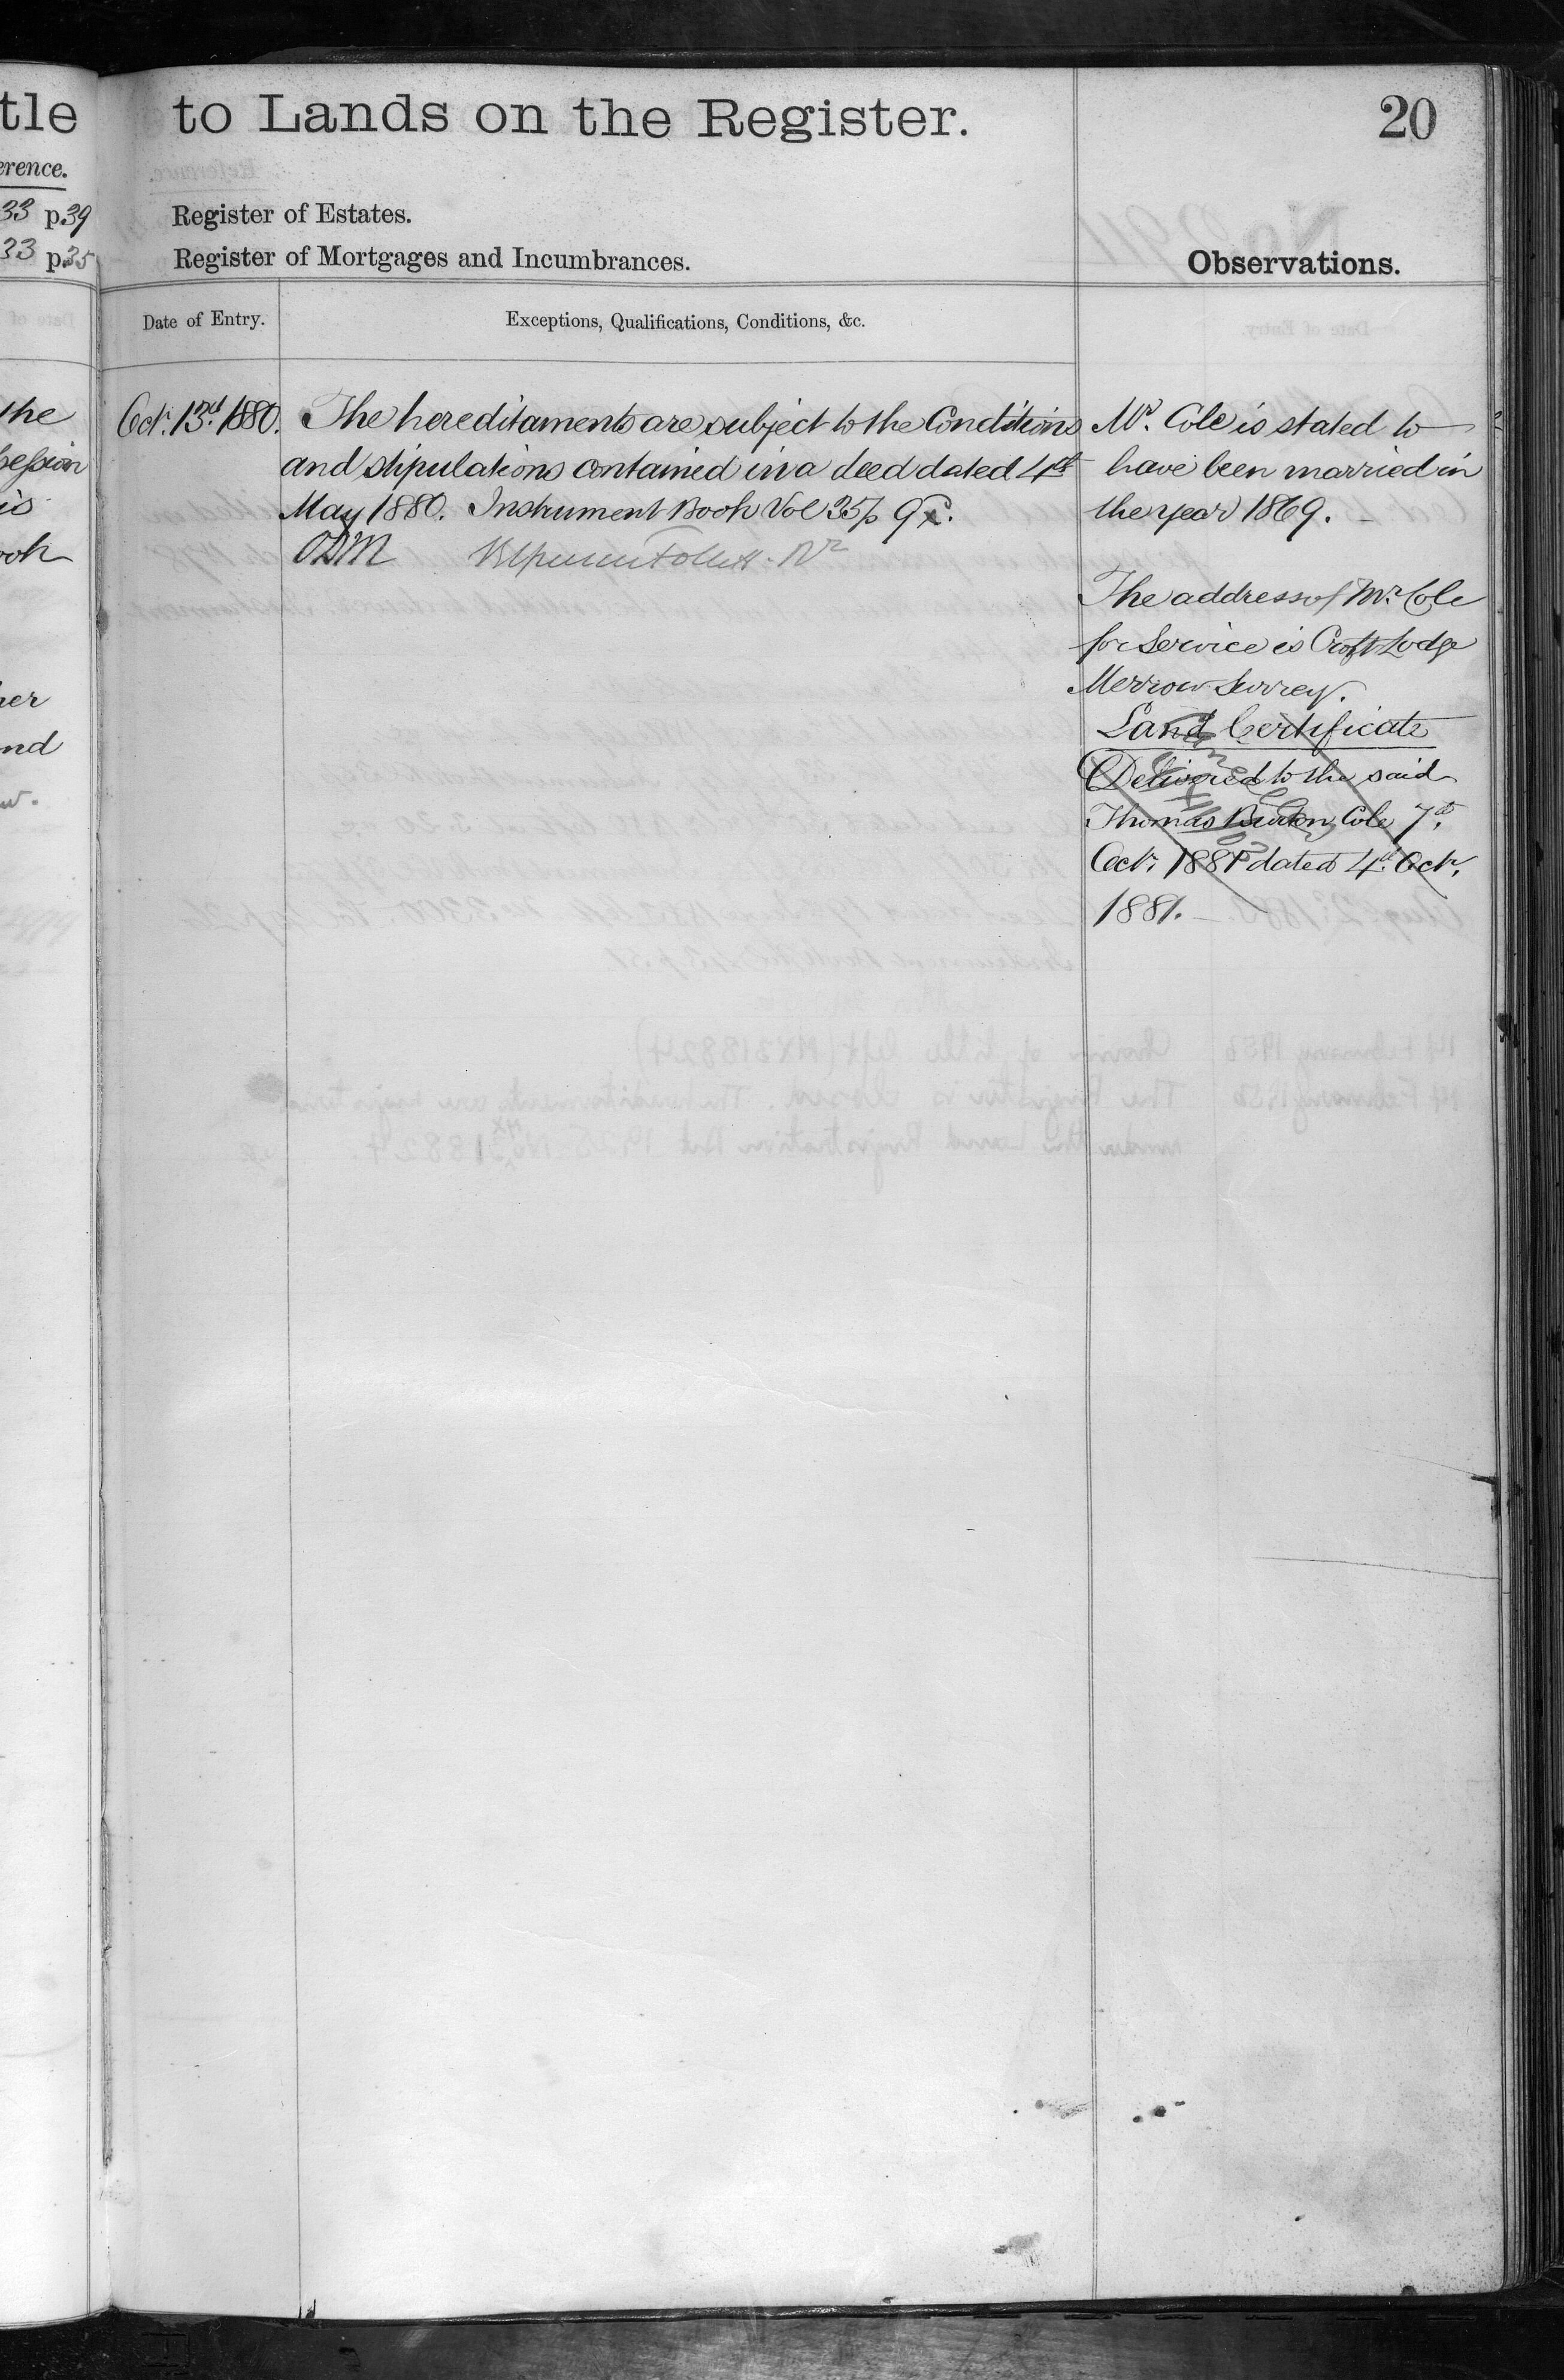 tle
erence.
33 p.39
33 p.35
the
session
is
her
nd
to Lands on the Register.
20
Register of Estates.
Register of Mortgages and Incumbrances.
Observations.
Date of Entry.
Exceptions, Qualifications, Conditions, &c.
Oct. 13th 1880.
The hereditaments are subject to the Conditions
and stipulations contained in a deed dated 4th
May 1880. Instrument Book Vol 35 p
ODM
Mr. Cole is stated to
have been married in
the year 1869.
The address of Mr. Cole
for Service is Croft Lodge
Merrow Surrey.
Land Certificate
Delivered to the said
Thomas Cole 7th
Oct. 1881 dated 4th Oct.
1881.